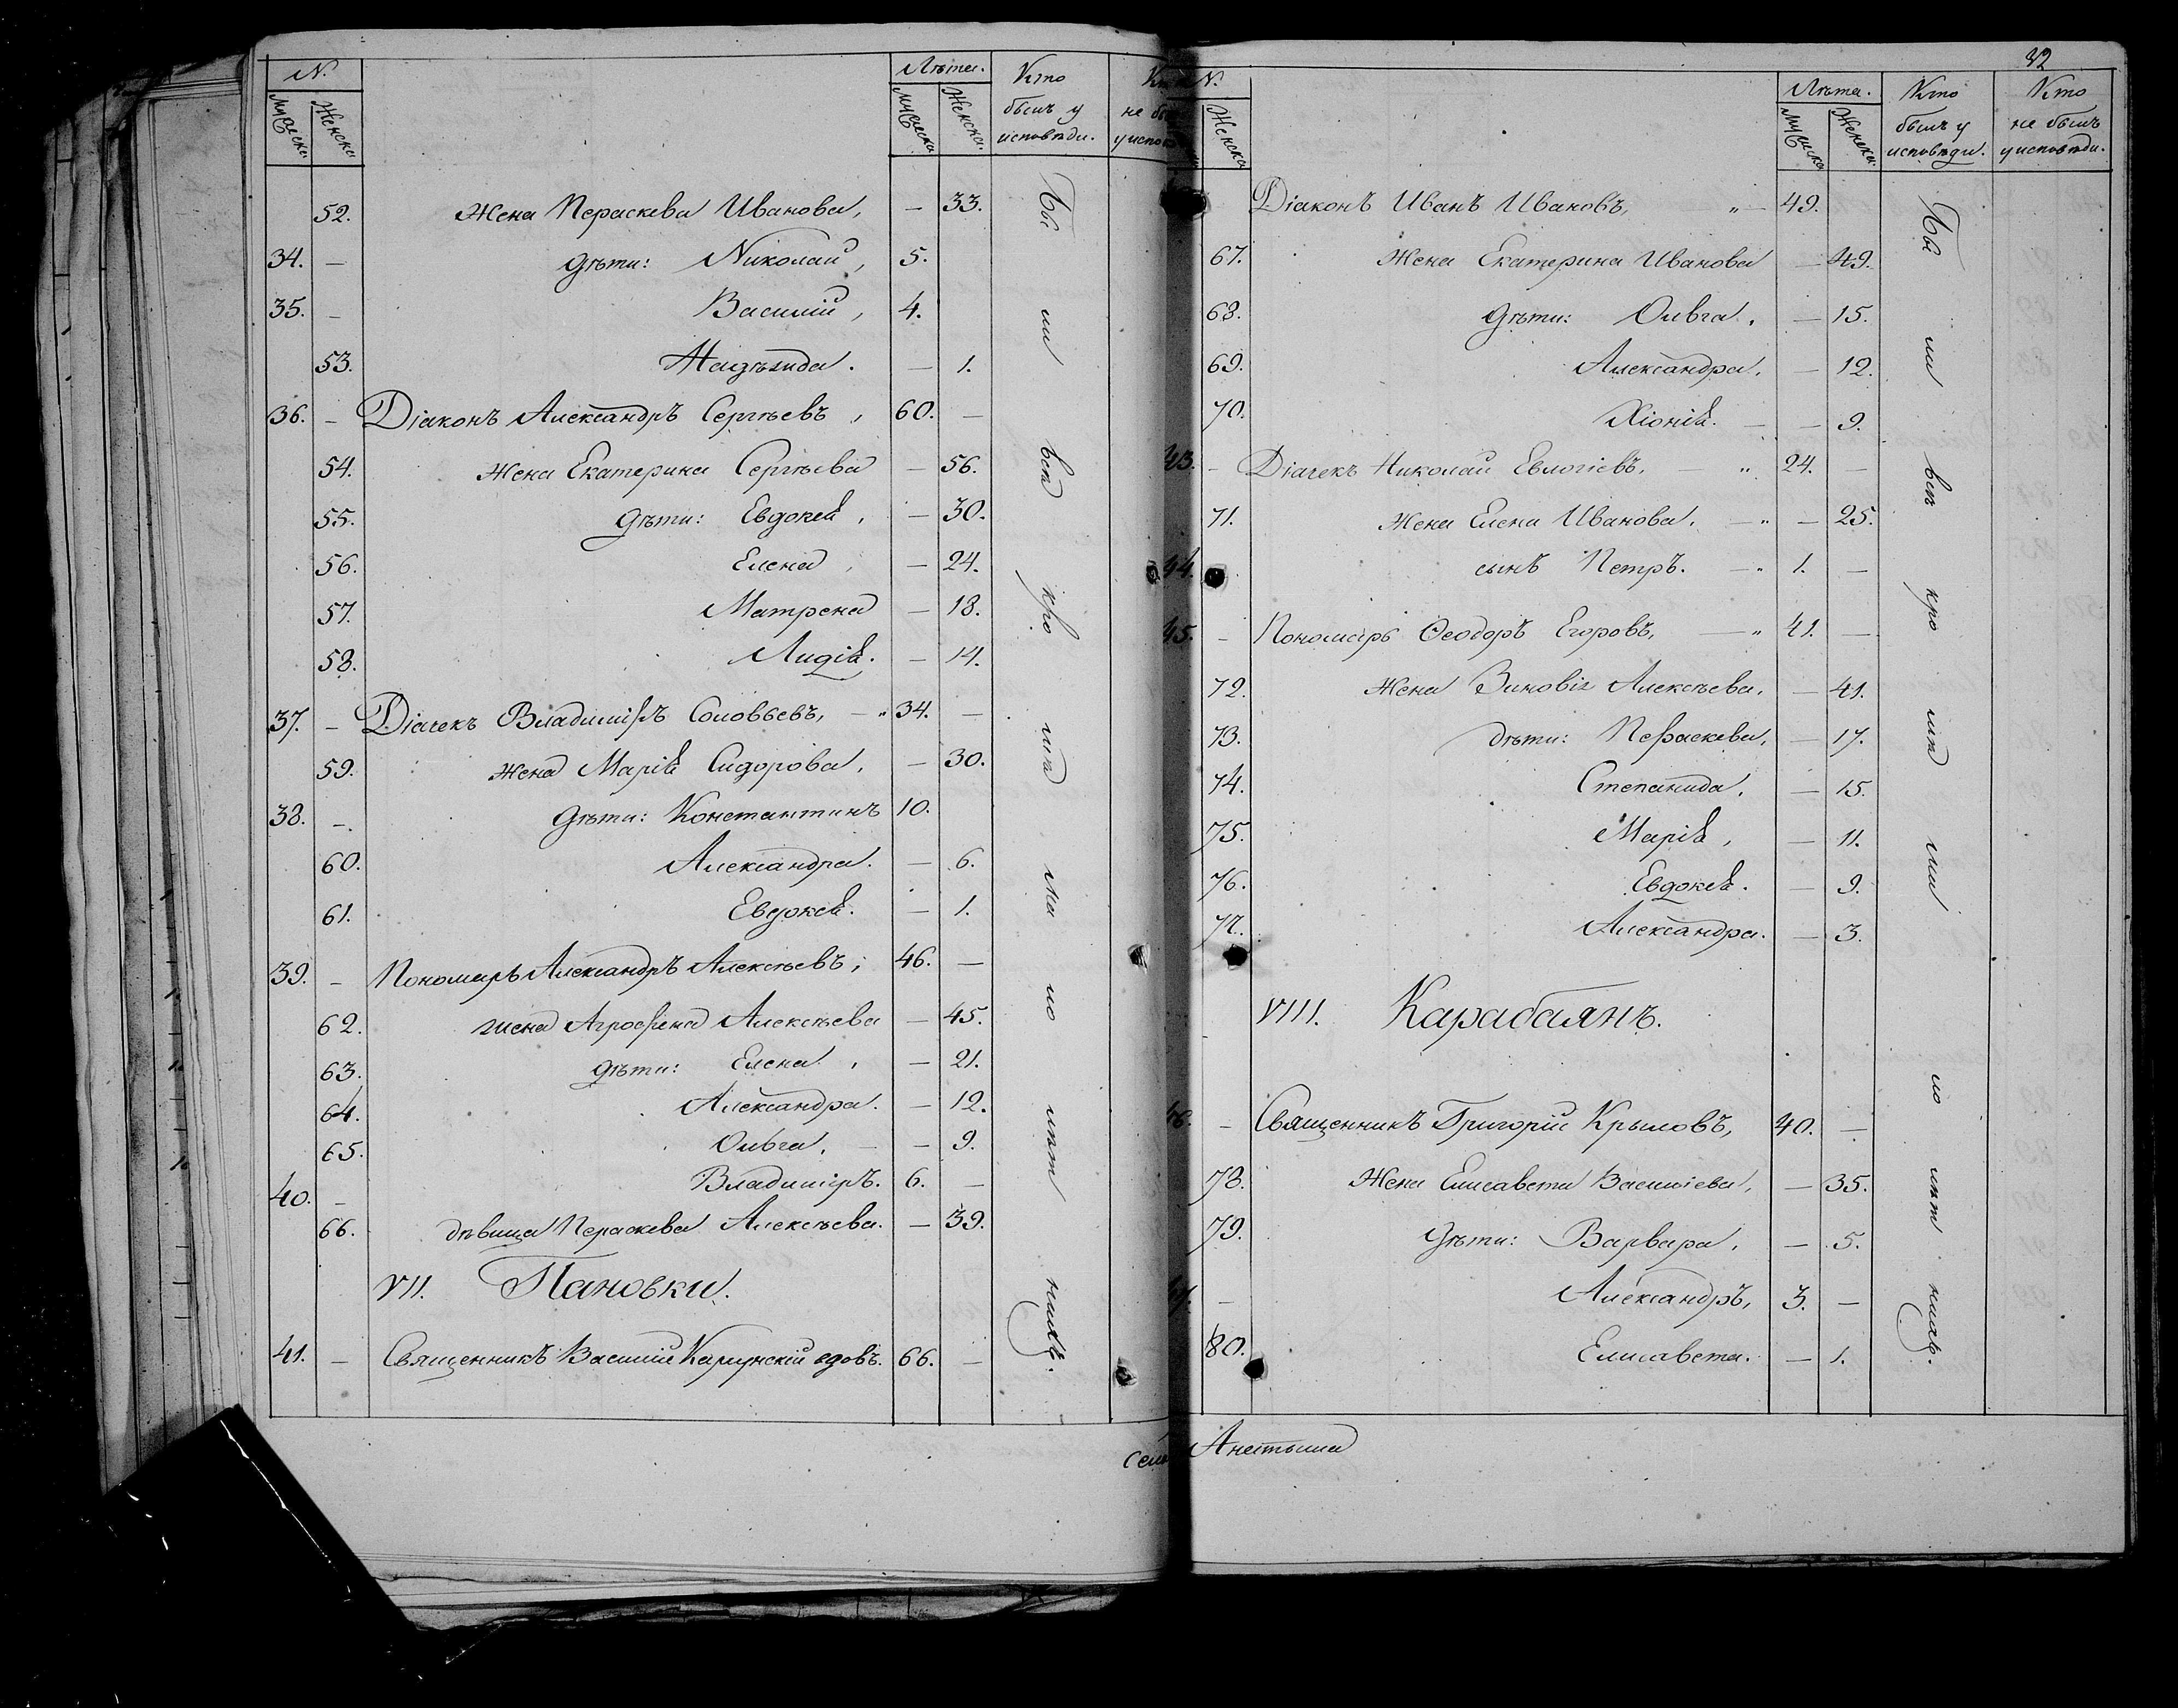 N. Лѣта. Кто Кто
Мужеска Женска Мужеска Женска. былъ у не бы
исповѣди. у испов
52. Жена Пераскева Иванова, — 33.
34. — дѣти: Николай, 5.
35. — Василий, 4.
53. Надѣжда. — 1.
36. — Діаконъ Александръ Сергѣевъ, 60. —
54. Жена Екатерина Сергѣева — 56.
55. дѣти: Евдокея, — 30.
56. Елена, — 24.
57. Матрена — 18.
58. Лидія. — 14.
37. — Діачекъ Владиміръ Соловьевъ, — „ 34. —
59. жена Марія Сидорова, — 30.
38. — дѣти: Константинъ 10.
60. Александра. — 6.
61. Евдокея. — 1.
39. — Пономарь Александръ Алексѣевъ, 46. —
62. жена Агрофена Алексѣева — 45.
63. дѣти: Елена, — 21.
64. Александра. — 12.
65. Ольга. — — 9.
40. — Владиміръ. 6. —
66. дѣвица Пераскева Алексѣева. — 39.
VII. Пановки.
41. — Священникъ Василий вдовъ. 66. —
Бы ли всѣ кро мѣ ма ло лѣт нихъ.
Села
32
N. Лѣта. Кто Кто
Женска Мужеска Женска. былъ у не былъ
исповѣди. у исповѣди.
Діаконъ Иванъ Ивановъ, „ — 49.
67. Жена Екатерина Иванова — 49.
68. дѣти: Ольга, — 15.
69. Александра, — 12.
70. Хіонія. — — 9.
43. — Діачекъ Николай Евлогіевъ, — „ 24. —
71. Жена Елена Иванова, — „ — 25.
44. сынъ Петръ. — „ 1. —
45. — Пономарь Ѳеодоръ Егоровъ, — „ 41. —
72. Жена Зиновія Алексѣева, — 41.
73. дѣти: Пераскева, — 17.
74. Степанида, — 15.
75. Марія, — 11.
76. Евдокея. — 9.
77. Александра. — 3.
VIII. Карабаянъ.
46. — Священникъ Григорій Крыловъ, 40. —
78. Жена Елисавета Василіева, — 35.
79. дѣти: Варвара, — 5.
47. — Александръ, 3. —
80. Елисавета. — 1.
Бы ли всѣ кро мѣ ма ло лѣт нихъ.